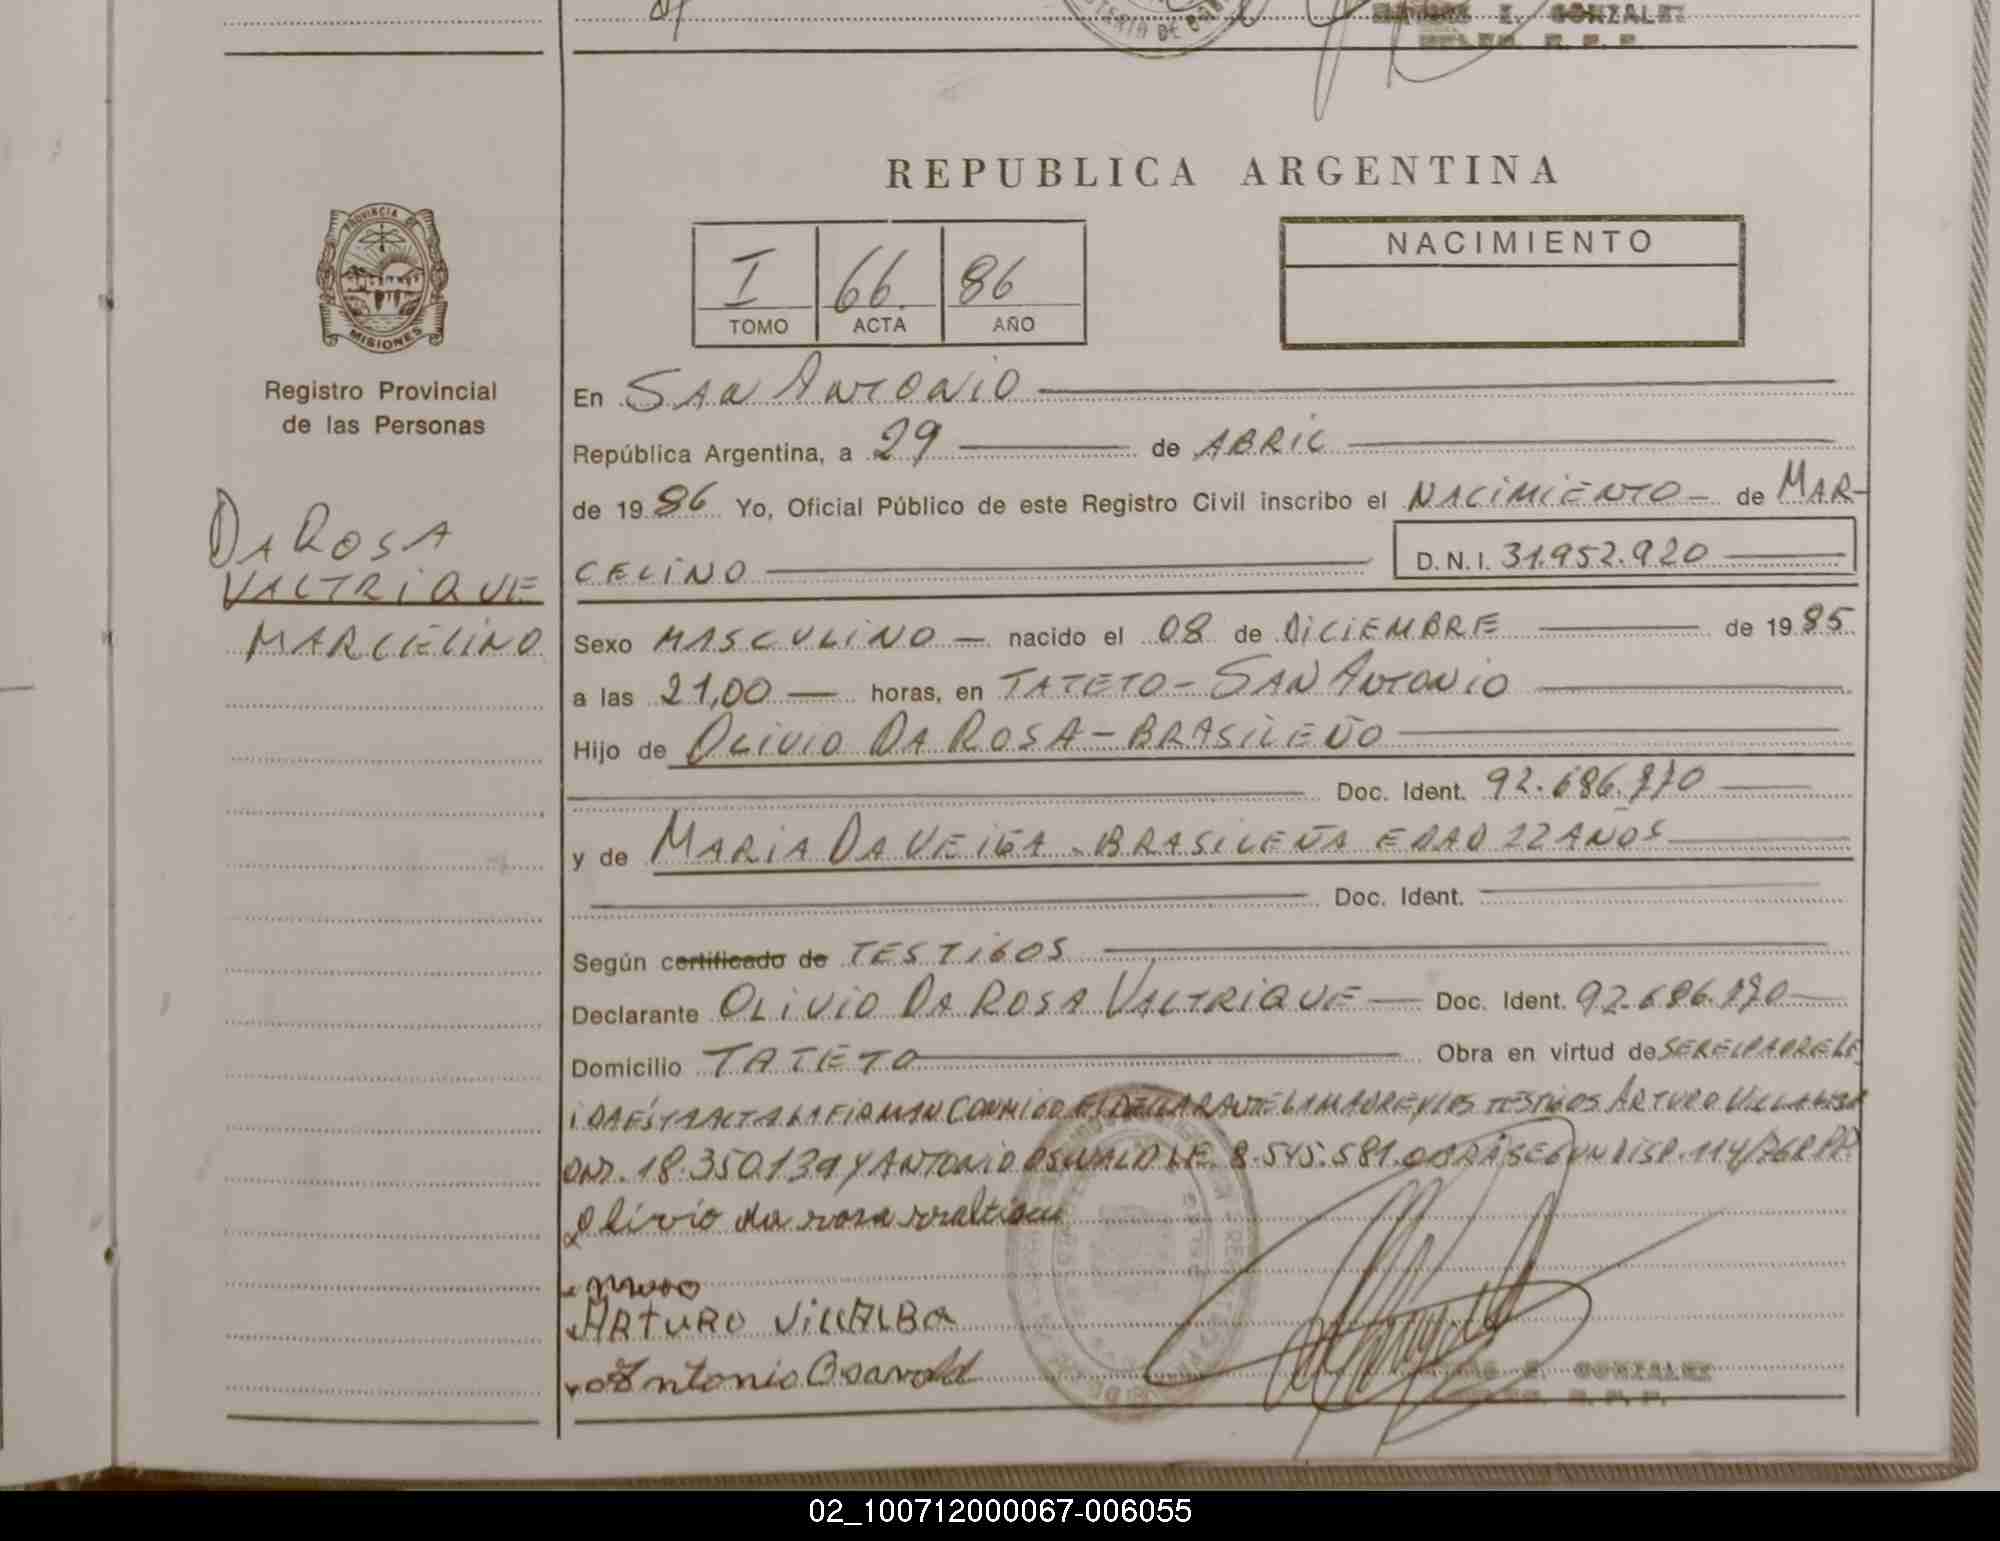 E. GONZALEZ
REPUBLICA ARGENTINA
PROVINCIA DE
MISIONES
I 66. 86
TOMO ACTA AÑO
NACIMIENTO
Registro Provincial
de las Personas
DA ROSA
VALTRIQUE
MARCELINO
En SAN ANTONIO
República Argentina, a 29 de ABRIL
de 1986 Yo, Oficial Público de este Registro Civil inscribo el NACIMIENTO - de MAR-
CELINO D.N.I. 31.952.920
Sexo MASCULINO - nacido el 08 de DICIEMBRE de 1985
a las 21,00 horas, en TATETO - SAN ANTONIO
Hijo de OLIVIO DA ROSA - BRASILEÑO
Doc. Ident. 92.686.
y de MARIA DA VEIGA - BRASILEÑA EDAD 22 AÑOS
Doc. Ident.
Según certificado de TESTIGOS
Declarante OLIVIO DA ROSA VALTRIQUE - Doc. Ident. 92.686.
Domicilio TATETO Obra en virtud de SER EL PADRE LE
IDA ESTA ACTA LA FIRMAN CONMIGO EL DECLARANTE LA MADRE Y LOS TESTIGOS ARTURO
DNI. 18.350.139 Y ANTONIO OSWALD L.E. 8.545.581. OBRA SEGUN DISP. 114/76 R.P.P.
Olivio da rosa
ARTURO VILLALBA
Antonio Osavald
E. GONZALEZ
02_100712000067-006055